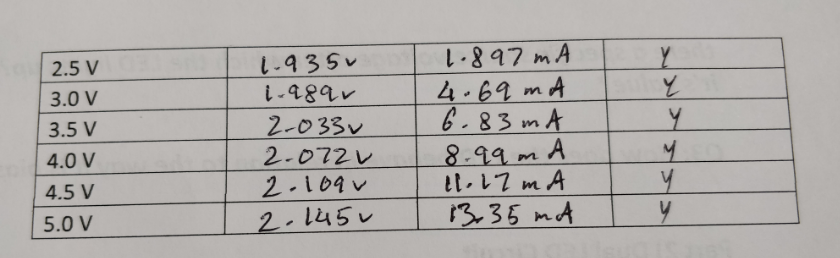 2.5 V 1.935v 1.897 mA Y
3.0 V 1.989v 4.69 mA Y
3.5 V 2.033v 6.83 mA Y
4.0 V 2.072v 8.99 mA Y
4.5 V 2.109v 11.17 mA Y
5.0 V 2.145v 13.35 mA Y